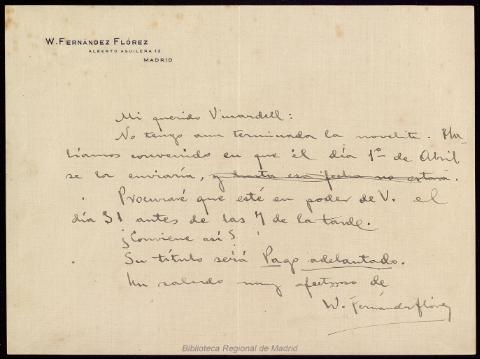 W. FERNÁNDEZ FLÓREZ
ALBERTO AGUILERA 12
MADRID
Mi querido Vinardell:
No tengo aun terminada la novelita. Ha-
bíamos convenido en que él día 1º de Abril
se la enviaría, y hasta esa fecha no estará.
Procuraré que esté en poder de V. el
día 31 antes de las 7 de la tarde.
¿Conviene así?
Su título será Pago adelantado.
Un saludo muy afectuoso de
W. Fernández Flórez
Biblioteca Regional de Madrid